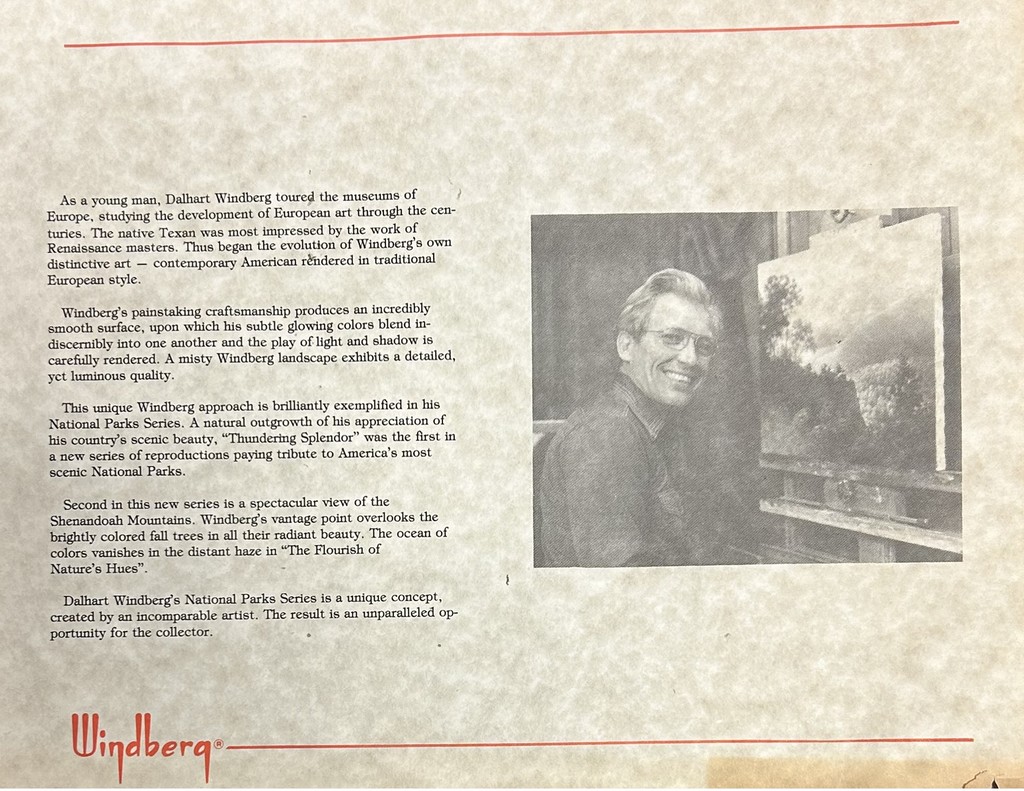 As a young man, Dalhart Windberg toured the museums of
Europe, studying the development of European art through the cen-
turies. The native Texan was most impressed by the work of
Renaissance masters. Thus began the evolution of Windberg's own
distinctive art — contemporary American rendered in traditional
European style.
Windberg's painstaking craftsmanship produces an incredibly
smooth surface, upon which his subtle glowing colors blend in-
discernibly into one another and the play of light and shadow is
carefully rendered. A misty Windberg landscape exhibits a detailed,
yet luminous quality.
This unique Windberg approach is brilliantly exemplified in his
National Parks Series. A natural outgrowth of his appreciation of
his country's scenic beauty, "Thundering Splendor" was the first in
a new series of reproductions paying tribute to America's most
scenic National Parks.
Second in this new series is a spectacular view of the
Shenandoah Mountains. Windberg's vantage point overlooks the
brightly colored fall trees in all their radiant beauty. The ocean of
colors vanishes in the distant haze in "The Flourish of
Nature's Hues".
Dalhart Windberg's National Parks Series is a unique concept,
created by an incomparable artist. The result is an unparalleled op-
portunity for the collector.
Windberg®